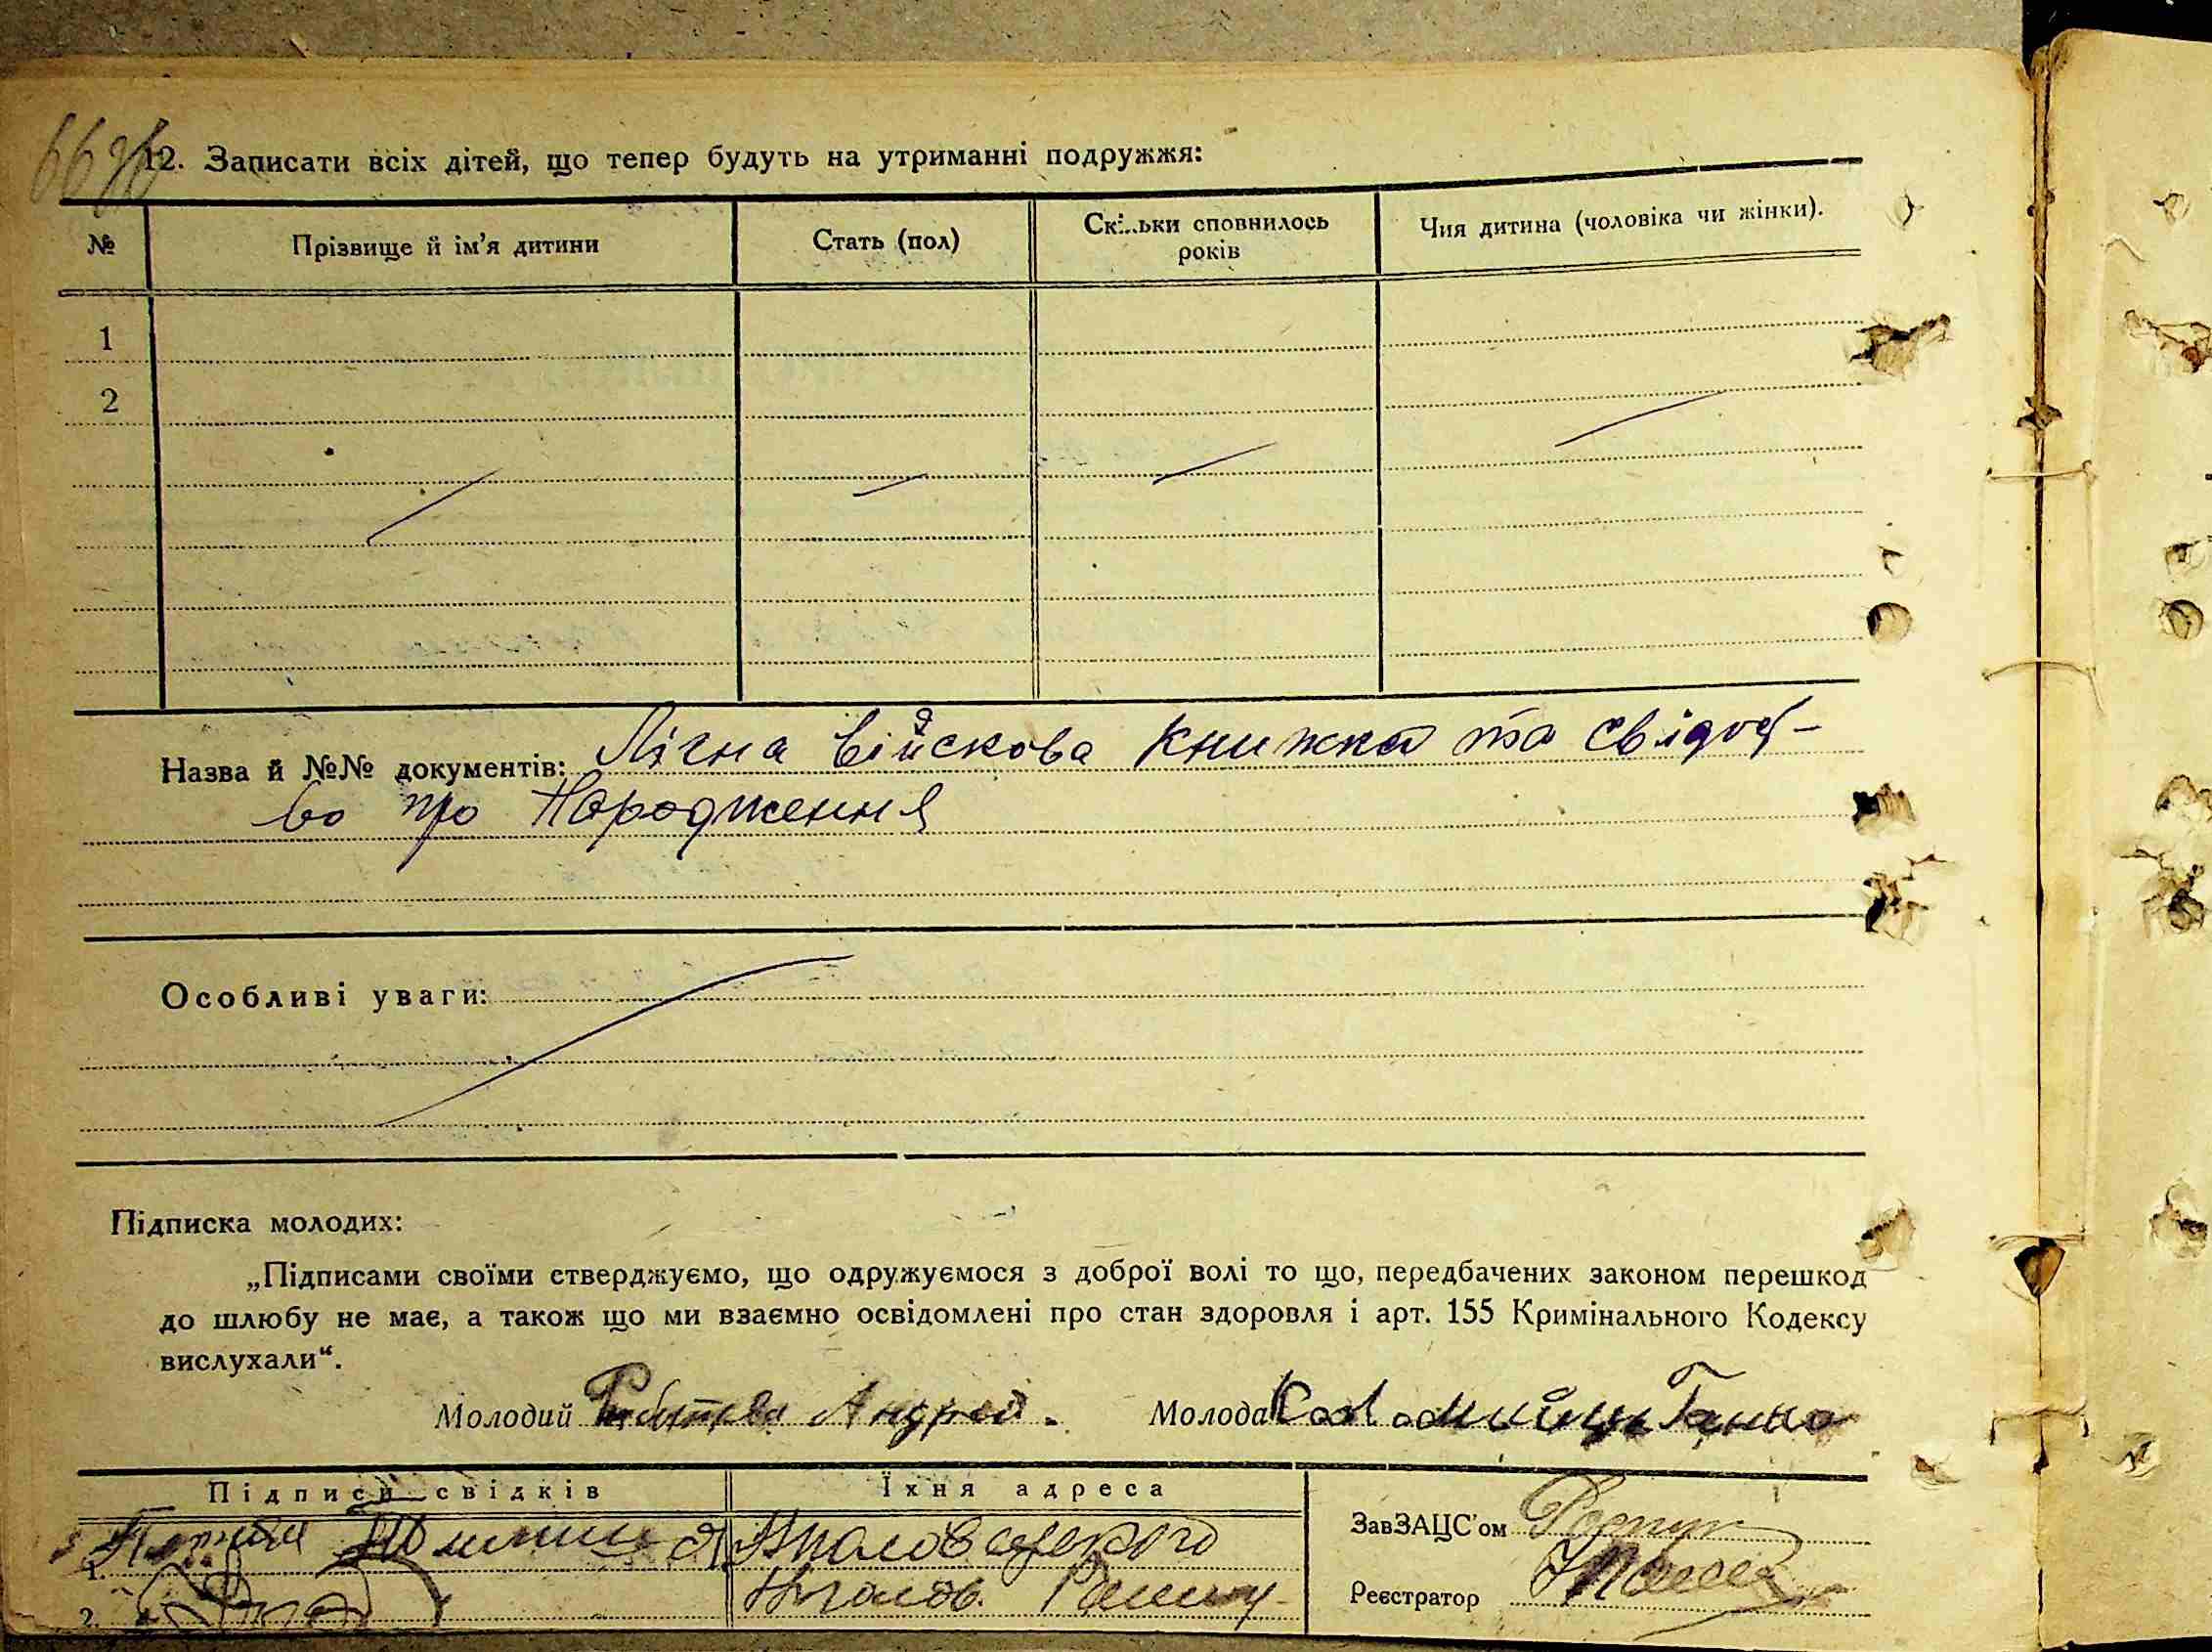 12. Записати всіх дітей, що тепер будуть на утриманні подружжя:
№ Прізвище й ім'я дитини Стать (пол) Скільки сповнилось років Чия дитина (чоловіка чи жінки).
1
2
Назва й №№ документів: Лічна війскова книжка та свідоц-
во про народження
Особливі уваги:
Підписка молодих:
„Підписами своїми стверджуємо, що одружуємося з доброї волі то що, передбачених законом перешкод
до шлюбу не має, а також що ми взаємно освідомлені про стан здоровля і арт. 155 Кримінального Кодексу
вислухали“.
Молодий Андрей. Молода Коломийць Ганна
Підписи свідків Їхня адреса
ЗавЗАЦС'ом
1.
2.
Реєстратор